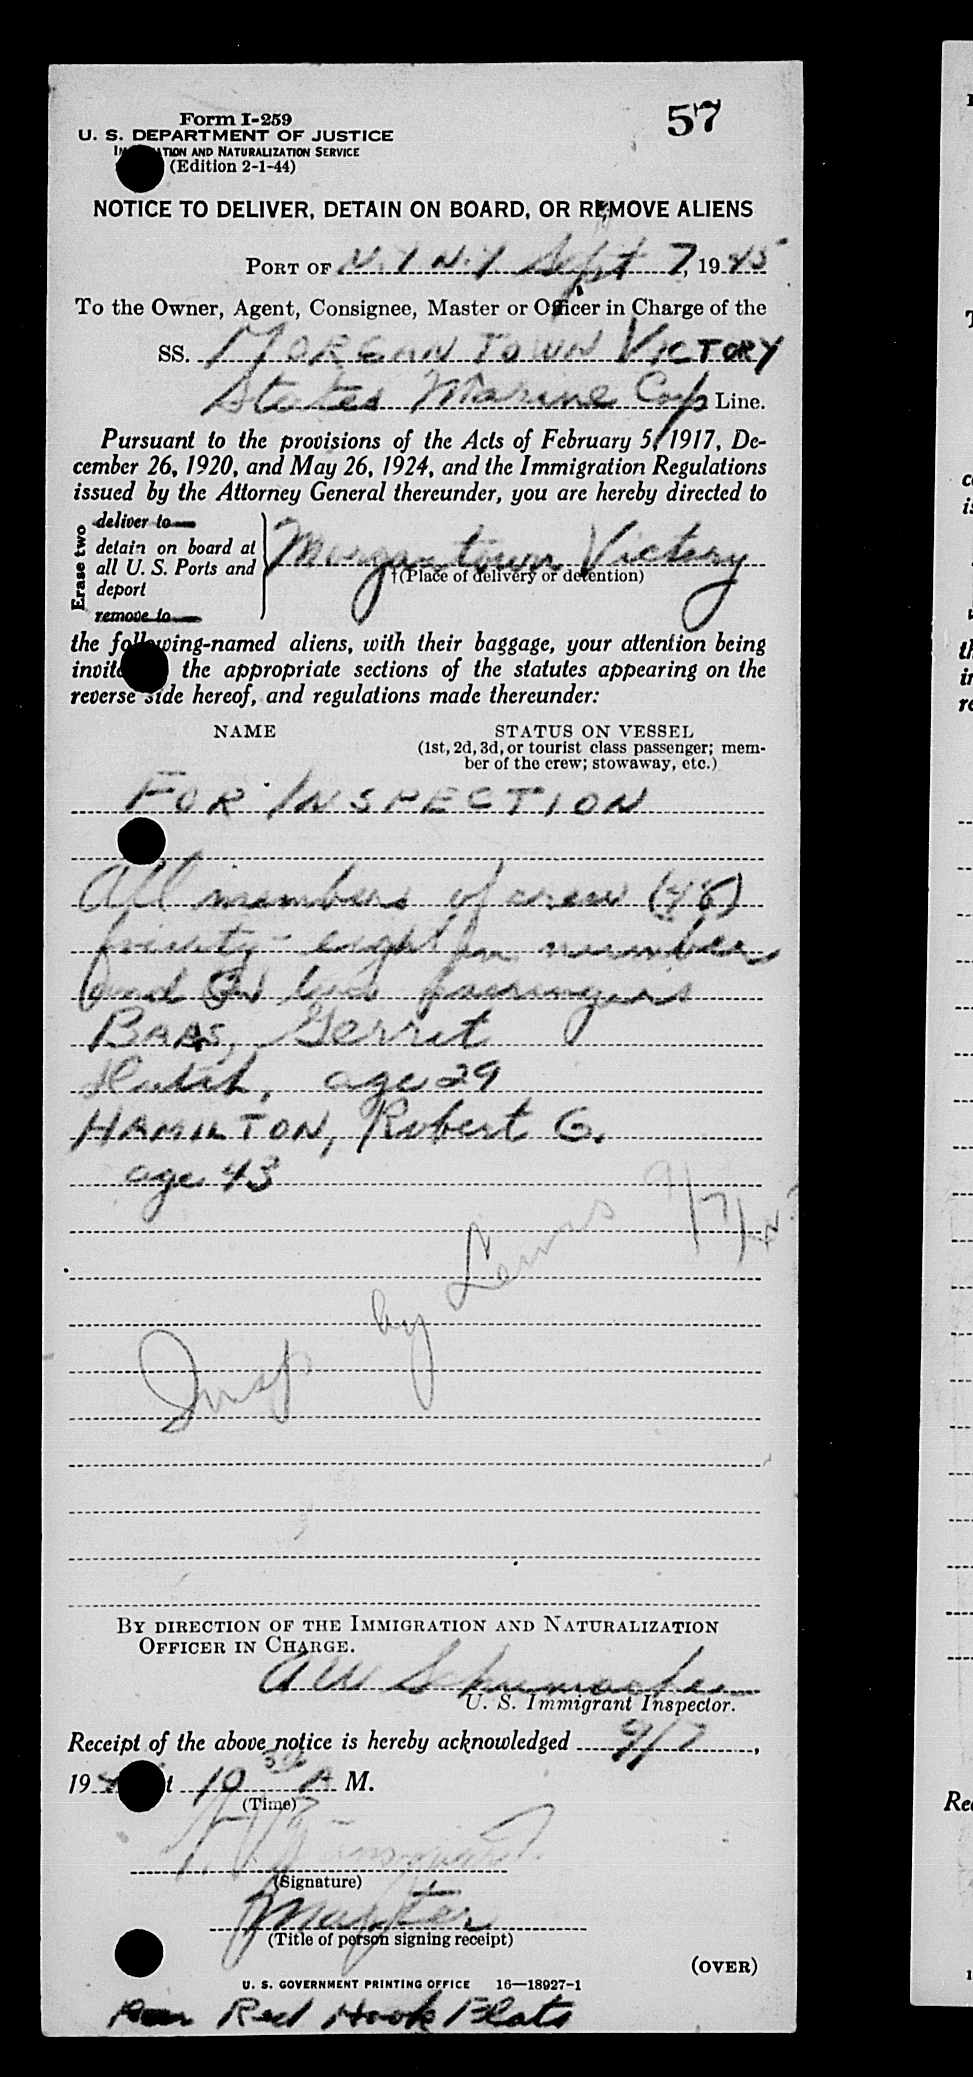 57
Form I-259
U. S. DEPARTMENT OF JUSTICE
IMMIGRATION AND NATURALIZATION SERVICE
(Edition 2-1-44)
NOTICE TO DELIVER, DETAIN ON BOARD, OR REMOVE ALIENS
PORT OF N.Y N.Y Sept 7, 1945
To the Owner, Agent, Consignee, Master or Officer in Charge of the
SS. MORGANTOWN VICTORY
States Marine Corp Line.
Pursuant to the provisions of the Acts of February 5, 1917, De-
cember 26, 1920, and May 26, 1924, and the Immigration Regulations
issued by the Attorney General thereunder, you are hereby directed to
Erase two
deliver to
detain on board at
all U. S. Ports and
deport
remove to
Morgantown Victory
†(Place of delivery or detention)
the following-named aliens, with their baggage, your attention being
invited the appropriate sections of the statutes appearing on the
reverse side hereof, and regulations made thereunder:
NAME STATUS ON VESSEL
(1st, 2d, 3d, or tourist class passenger; mem-
ber of the crew; stowaway, etc.)
FOR INSPECTION
All members of crew (48)
eight in number
and two passengers
BAAS, Gerrit
Dutch, age 29
HAMILTON, Robert G.
age 43
Insp by Lewis 9/7/45
BY DIRECTION OF THE IMMIGRATION AND NATURALIZATION
OFFICER IN CHARGE.
A W Schumacher
U. S. Immigrant Inspector.
Receipt of the above notice is hereby acknowledged 9/7,
19 at 10 30 A M.
(Time)
(Signature)
Master
(Title of person signing receipt)
(OVER)
U. S. GOVERNMENT PRINTING OFFICE 16—18927-1
Red Hook Flats